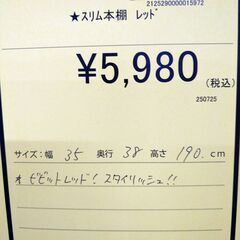 2125290000015972
★スリム本棚 レッド
¥5,980
(税込)
250725
サイズ:幅 35 奥行 38 高さ 190.cm
★ビビットレッド! スタイリッシュ!!